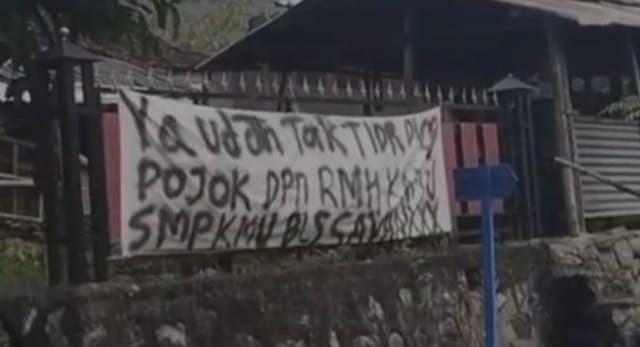 Ya udah Tak TIDR DLOG
POJOK DPN RMH KAMU
SMPKMU BLS SAYANKXX